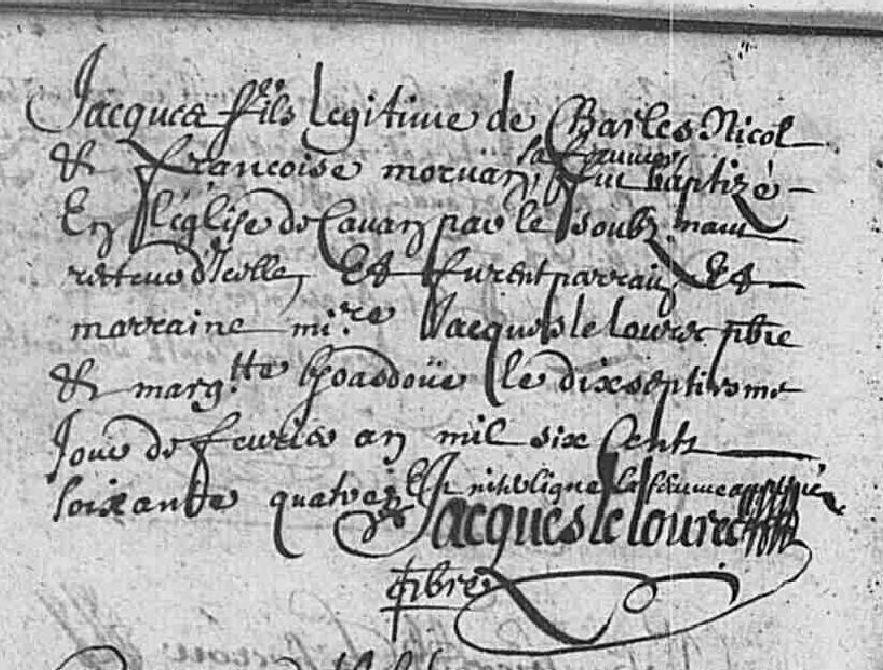 Jacques fils legitime de Charles Nicol
& francoise moruan, sa femme, fut baptizé
En l'église de Cauan par le soubz
recteur d'Icelle, Et furent parrain Et
marraine mi.re Jacques le lourec pbre
& marg.tte le dixseptiesme
Jour de feurier an mil six Cents
soixante quatre, En interligne sa femme
Jacques le lourec
pbre